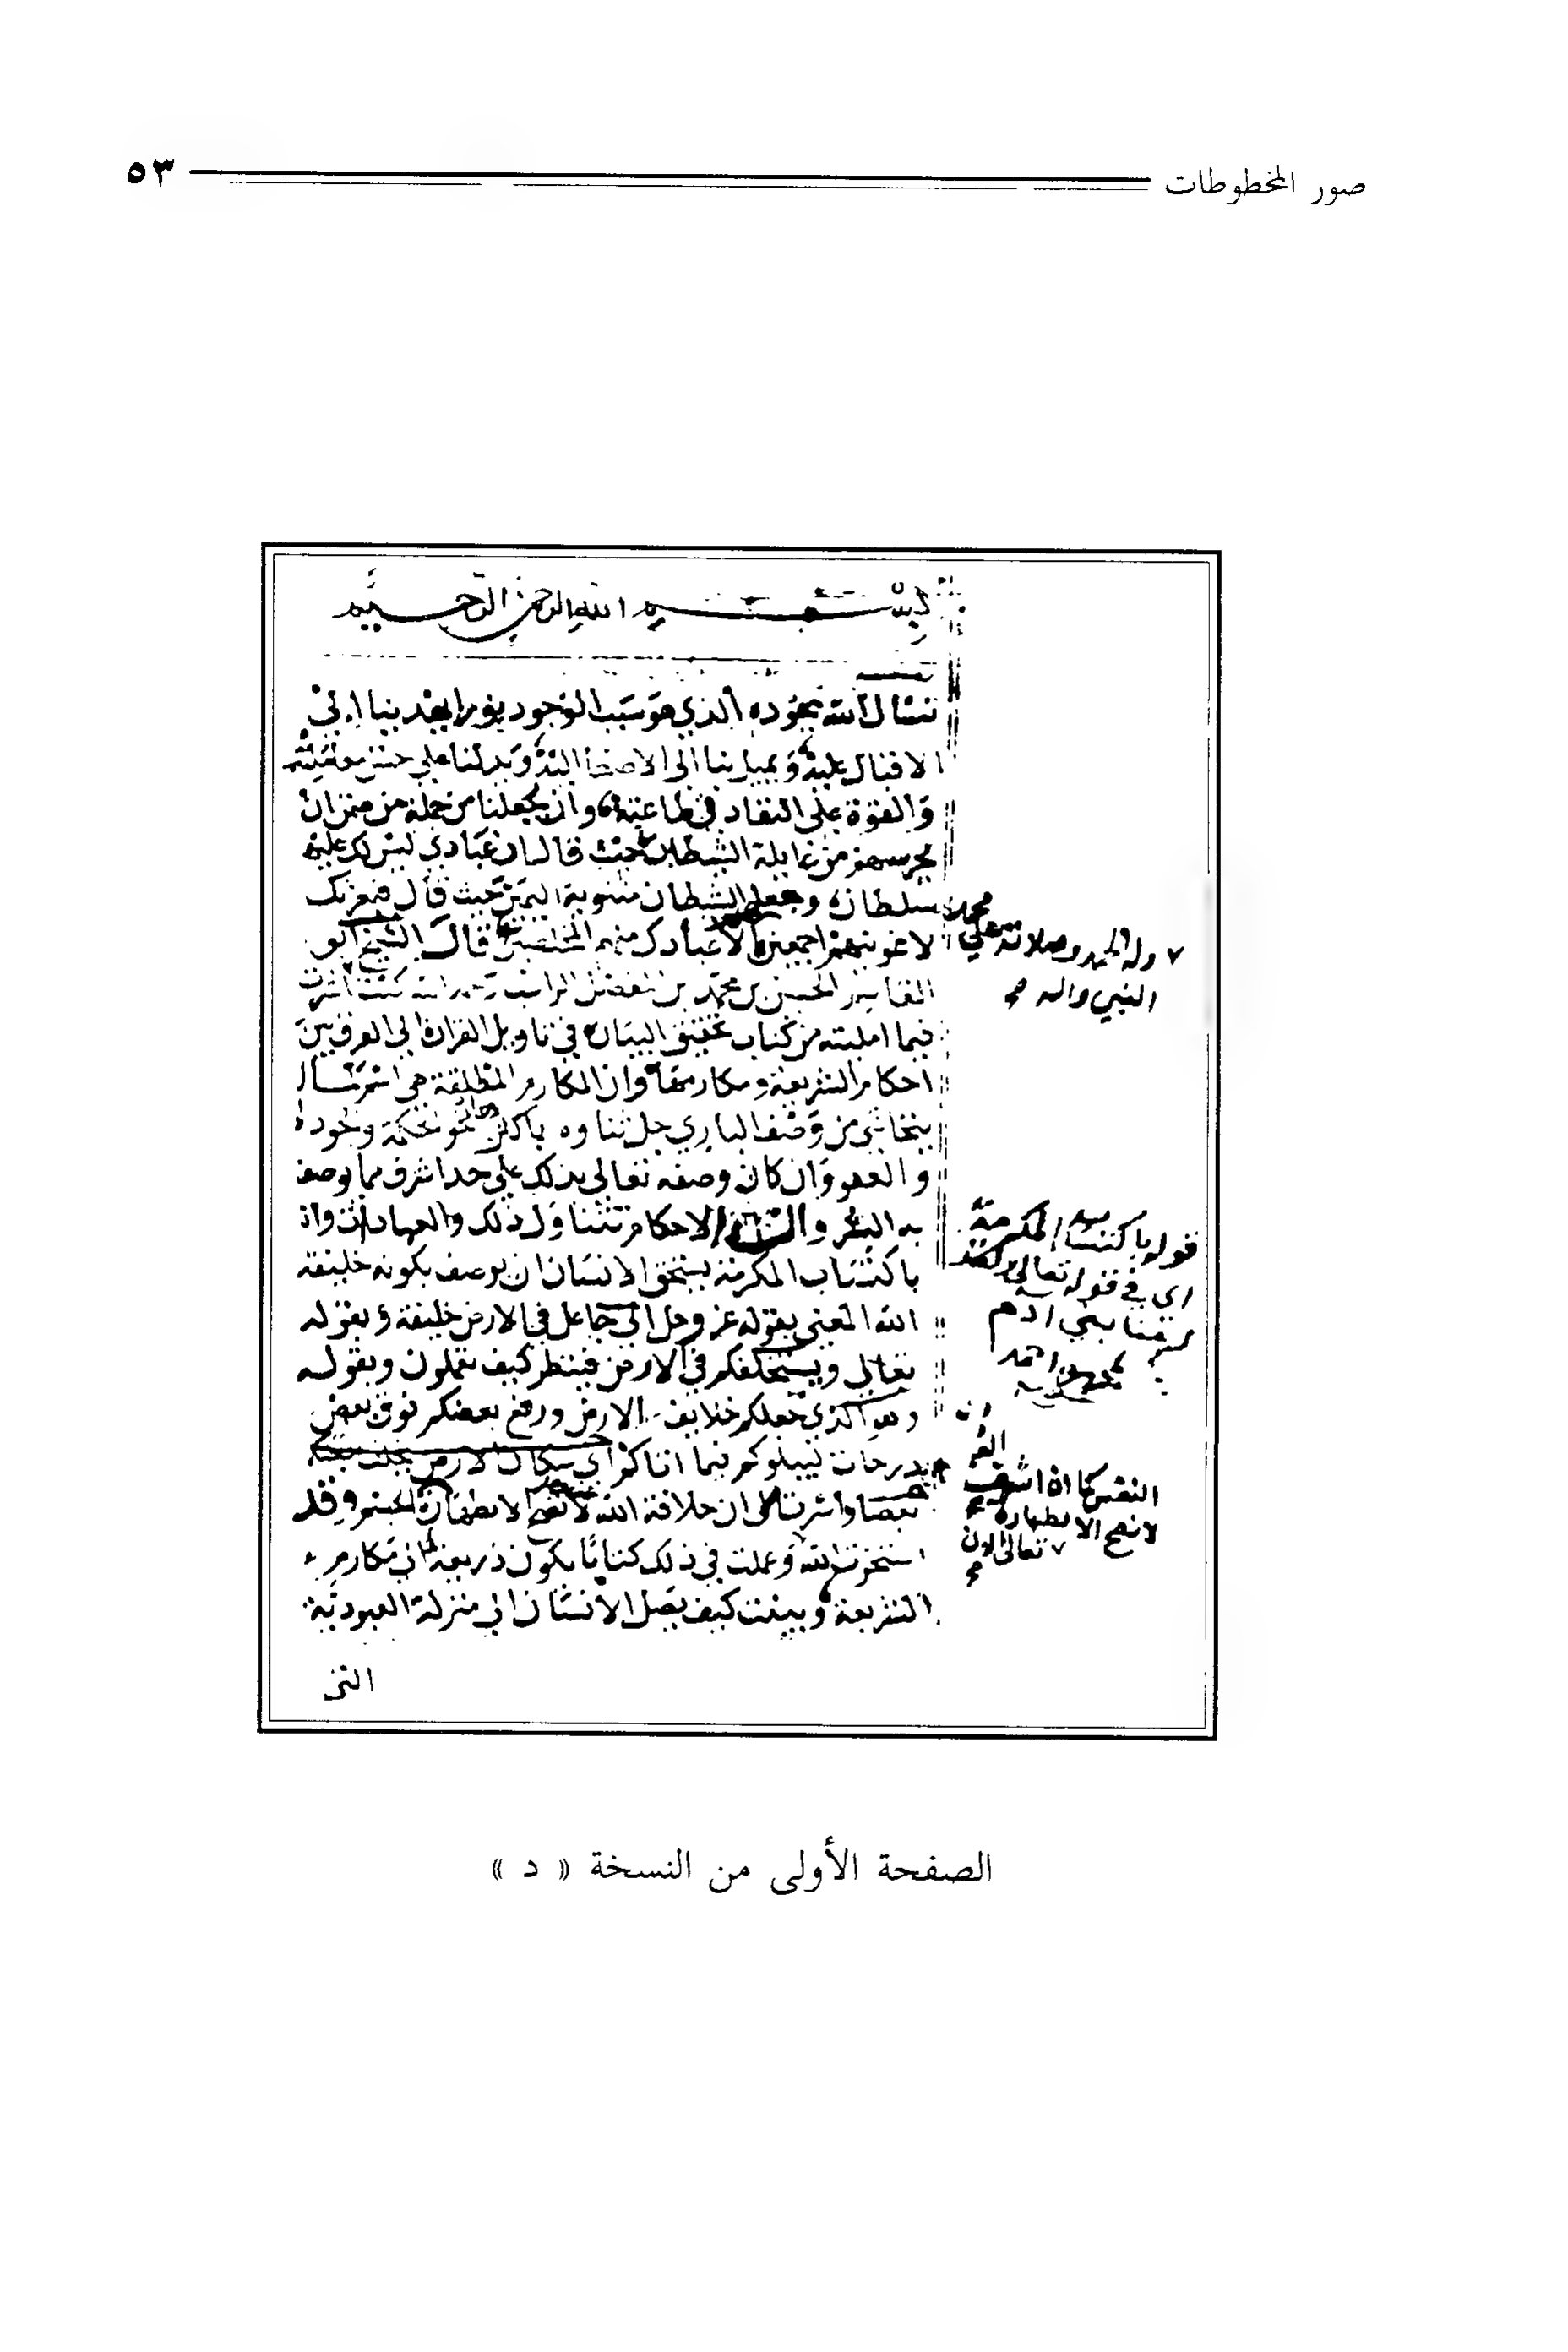 صور المخطوطات ٥٣
بسم الله الرحمن الرحيم
نسال الله بجوده الذي هو سبب الوجود يقودنا الى
الاقبال عليه ويميل بنا الى الاصغا اليه ويدلنا على حسن معاملته
والقوة على النفاد في طاعته وان يجعلنا من جملة من ضمن ان
يحرسهم من غايلة الشيطان حيث قال ان عبادي ليس لك عليهم
سلطان وجعل الشيطان مثنوية اليمين حيث قال فبعزتك
لاغوينهم اجمعين الا عبادك منهم المخلصين قال الشيخ ابو
القاسم الحسين بن محمد بن المفضل الراغب رحمه الله كنت اشرت
فيما امليته من كتاب تحقيق البيان في تاويل القران الى الفرق بين
احكام الشريعة ومكارمها وان المكارم المطلقة هي اسم لما لا
يتحاشى من وصف الباري جل ثناوه بها نحو الحكمة والجود
والعفو وان كان وصفه تعالى بذلك على حد اشرف مما يوصف
به البشر و الاحكام تتناول ذلك والعبادات وان
باكتساب المكرمة يستحق الانسان ان يوصف بكونه خليفة
الله المعني بقوله عز وجل اني جاعل في الارض خليفة وبقوله
تعالى ويستخلفكم في الارض فينظر كيف تعملون وبقوله
وهو الذي جعلكم خلايف الارض ورفع بعضكم فوق بعض
درجات ليبلوكم فيما اتاكم اي سكان الارض يخلف بعضكم
بعضا واشرت الى ان خلافة الله لا تصح الا بطهارة النفس وقد
استخرت الله وعملت في ذلك كتابا يكون ذريعة الى مكارم
الشريعة وبينت كيف يصل الانسان الى منزلة العبودية
التي
وله الحمد وصلاته على محمد
النبي واله
قوله باكتساب المكرمة
اي في قوله تعالى ولقد
كرمنا بني ادم
النفس كما ان اشرف
لا تصح الا بطهارة
الصفحة الأولى من النسخة « د »